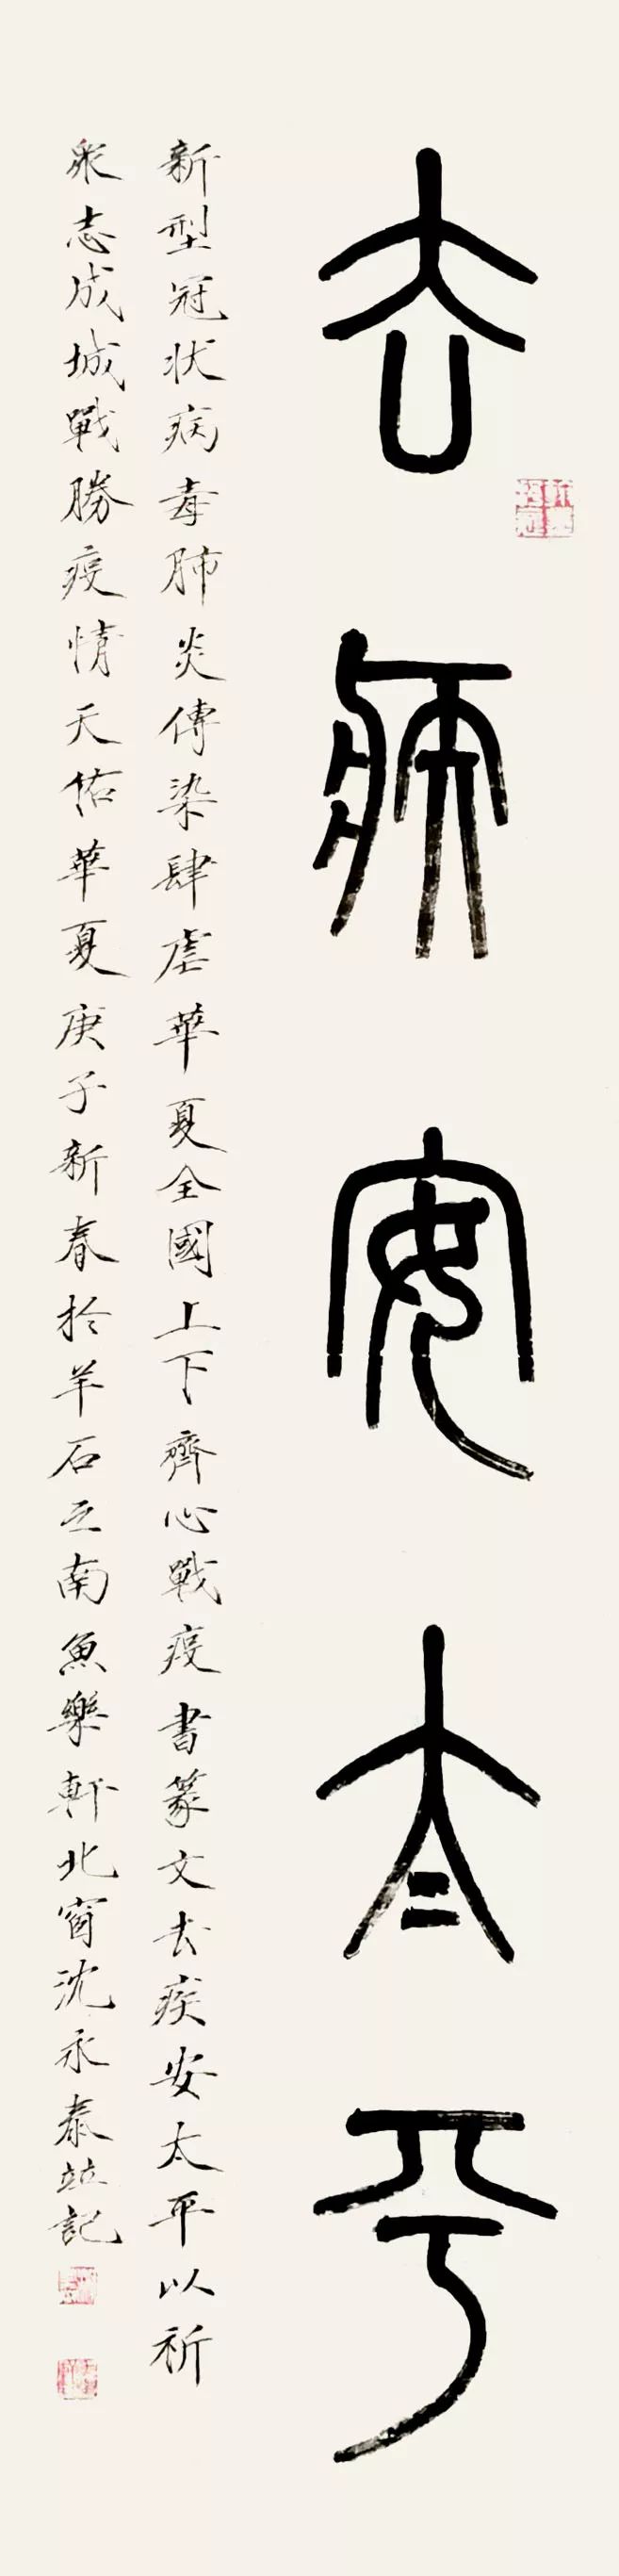 去病安太平
新型冠状病毒肺炎傳染肆虐華夏全國上下齊心戰疫書篆文去疾安太平以祈
眾志成城戰勝疫情天佑華夏庚子新春於羊石之南魚樂軒北窗沈永泰並記